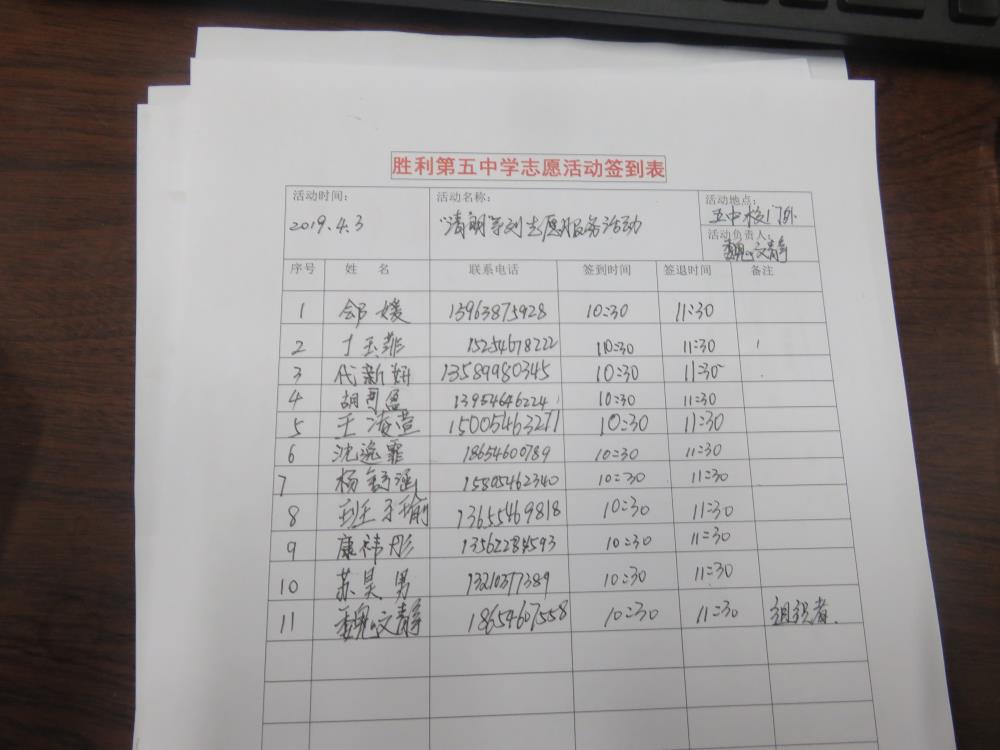 胜利第五中学志愿活动签到表
活动时间： 活动名称： 活动地点：
2019.4.3 "清明系列志愿服务活动 五中校门外
活动负责人：
魏文静
序号 姓 名 联系电话 签到时间 签退时间 备注
1 邰媛 13963875928 10:30 11:30
2 丁玉菲 15254678222 10:30 11:30
3 代新妍 13589980345 10:30 11:30
4 胡可盈 13954646224 10:30 11:30
5 王凌萱 15005463271 10:30 11:30
6 沈逸霏 18654600789 10:30 11:30
7 杨舒涵 15805462340 10:30 11:30
8 王子瑜 13655469818 10:30 11:30
9 康祎彤 13562284593 10:30 11:30
10 苏昊男 13210377389 10:30 11:30
11 魏文静 1865467558 10:30 11:30 组织者.